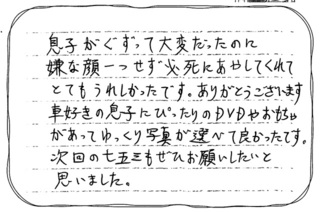 息子がぐずって大変だったのに
嫌な顔一つせず必死にあやしてくれて
とてもうれしかったです。ありがとうございます
車好きの息子にぴったりのDVDやおもちゃ
があってゆっくり写真が選べて良かったです。
次回の七五三もぜひお願いしたいと
思いました。